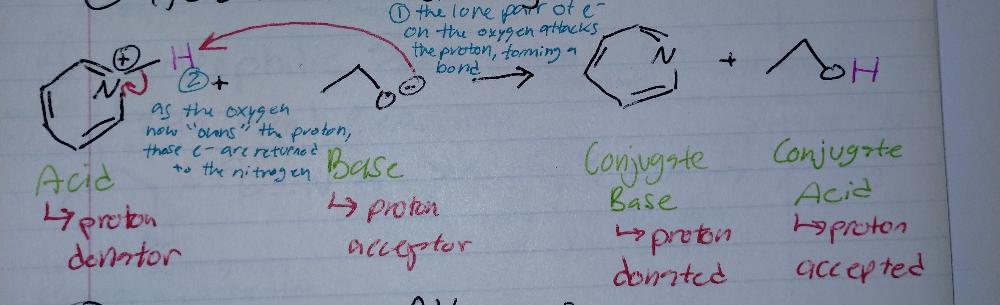 ① the lone pair of e-
on the oxygen attacks
the proton, forming a
bond
⊕ H
N
② +
O ⊖
N
+
O H
as the oxygen
now "owns" the proton,
those e- are returned
to the nitrogen
Acid
↳ proton
donator
Base
↳ proton
acceptor
Conjugate
Base
↳ proton
donated
Conjugate
Acid
↳ proton
accepted